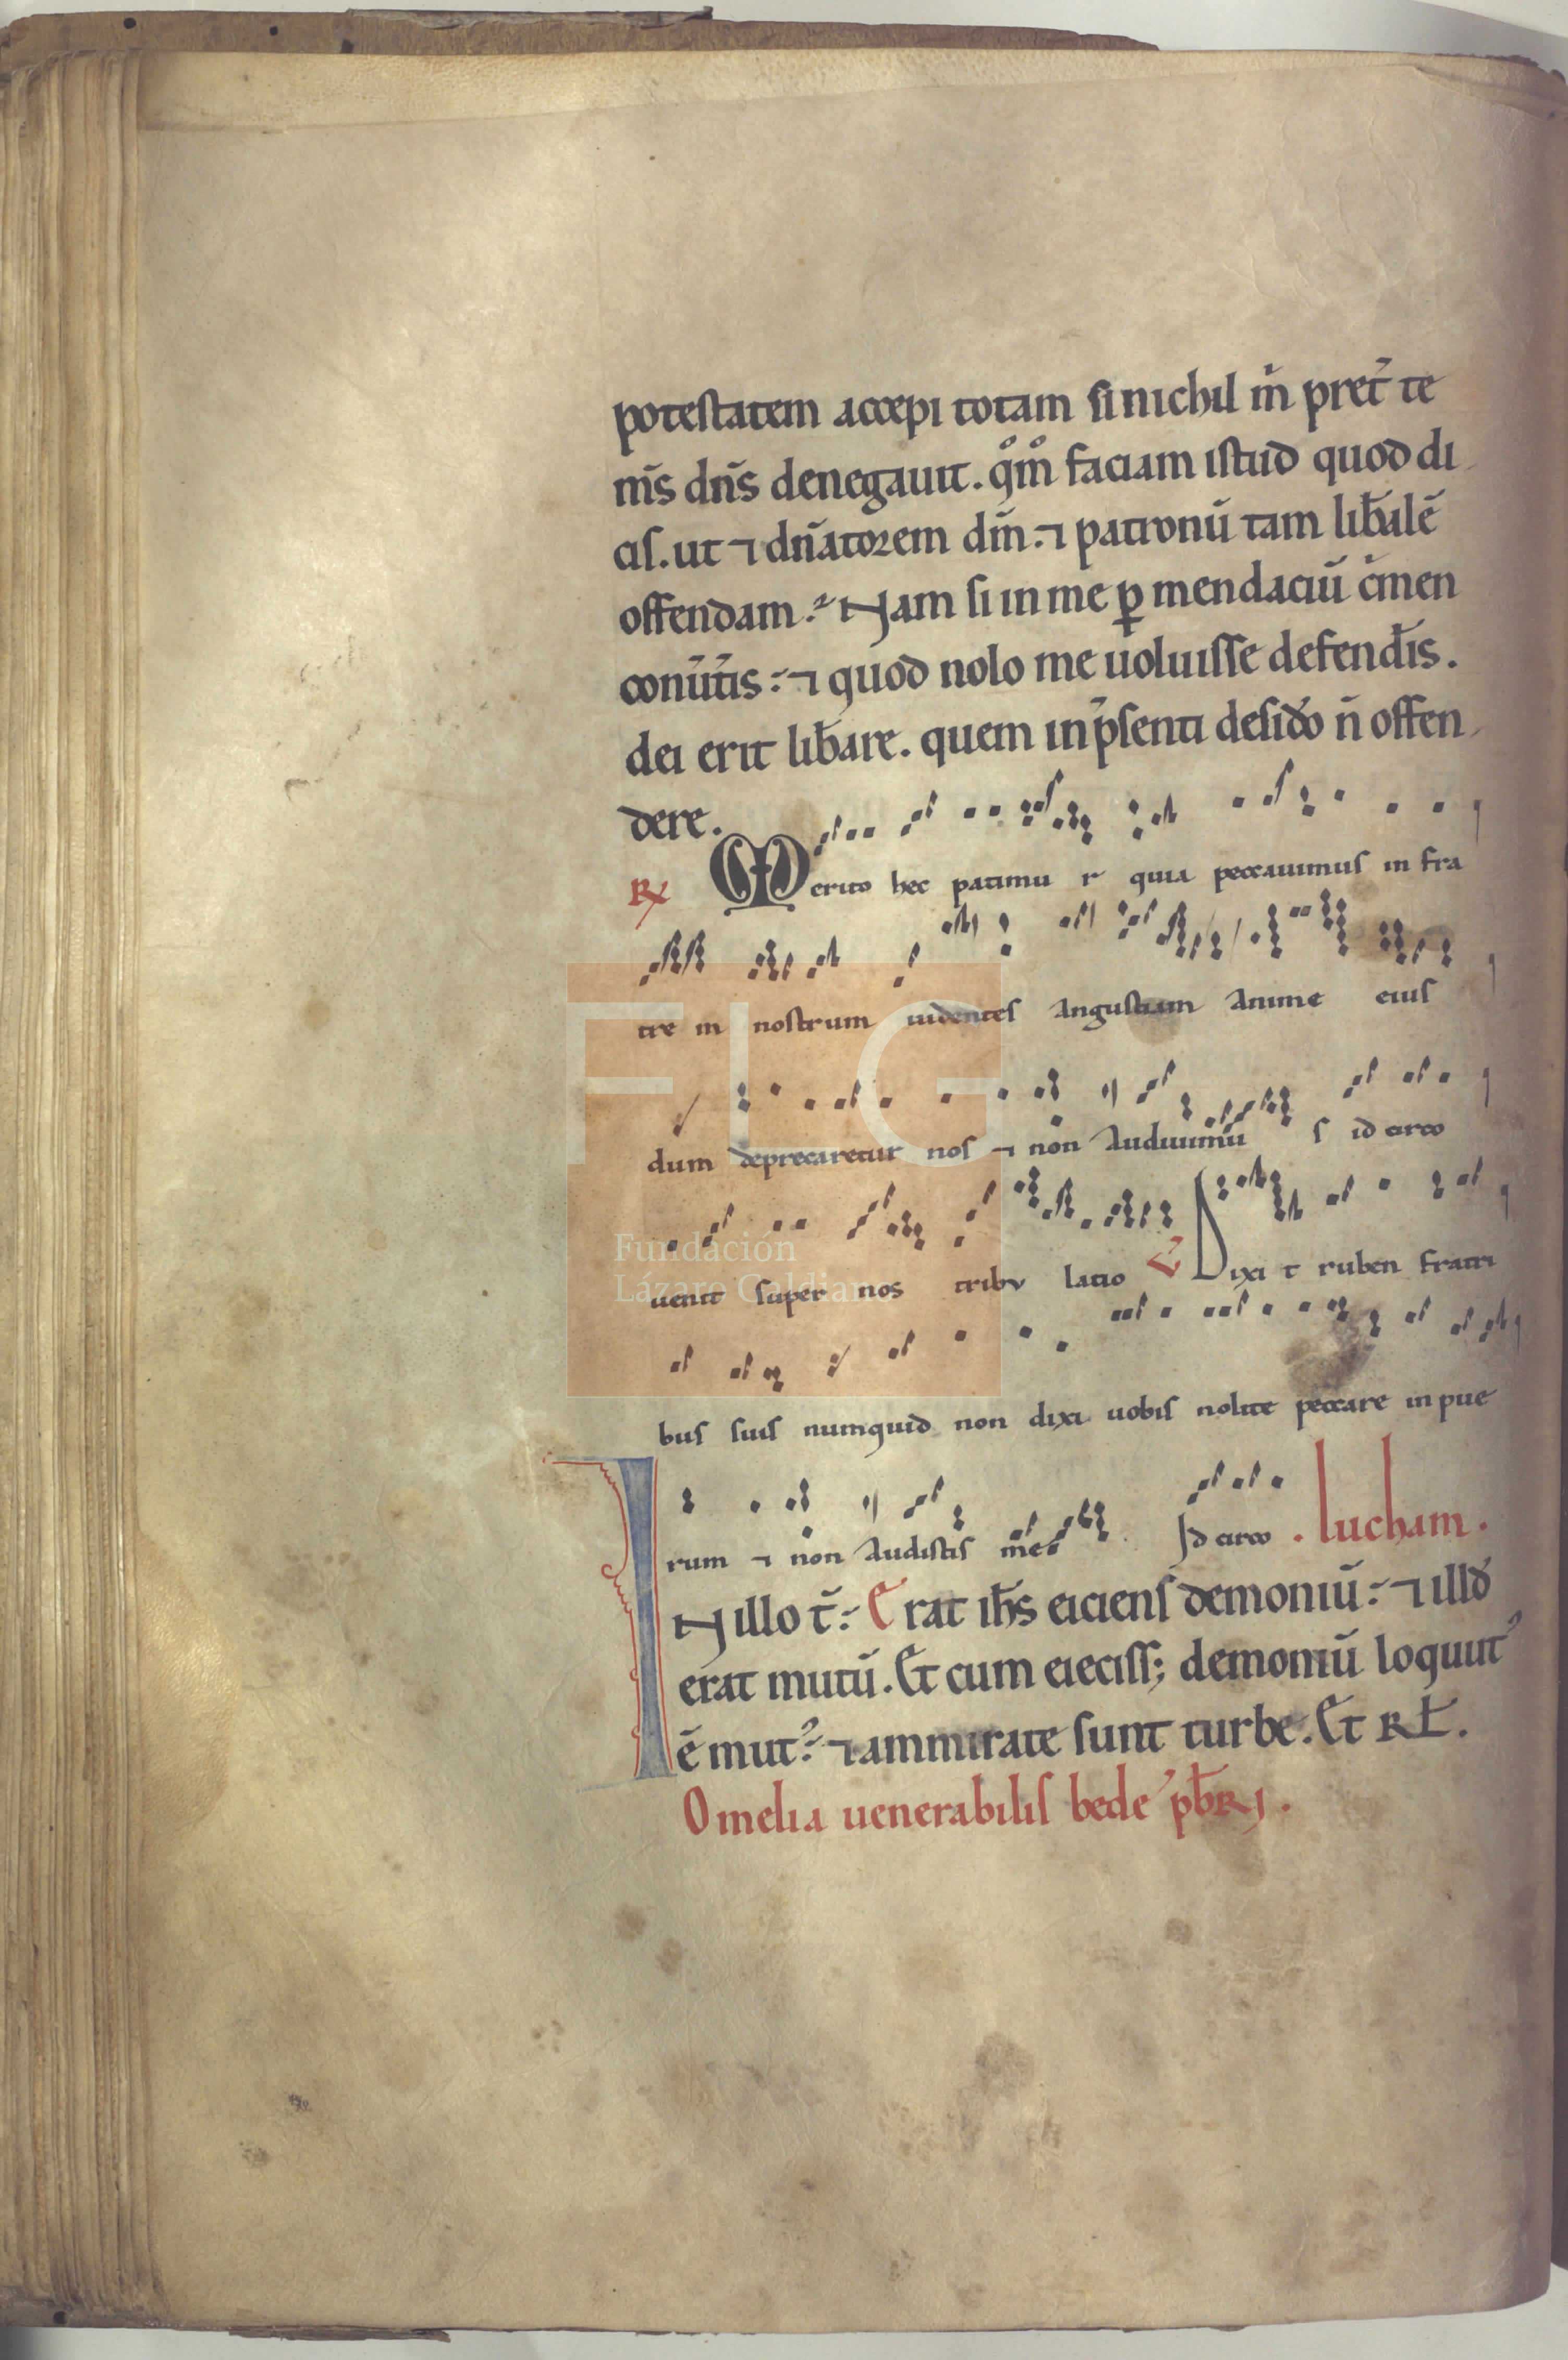 potestatem accepi totam si nichil m̄ pret̄ te
m̄s dn̄s denegauit. qͦmͦ faciam istud quod di
cis. ut ⁊ dn̄atorem dm̄. ⁊ patronū tam lib̄alē
offendam. Nam si in me ꝑ mendaciū c̄men
conūt̄is: ⁊ quod nolo me uoluisse defendis.
dei erit lib̄are. quem in p̄senti desid̄o n̄ offen
dere.
℞ Merito hec patimu r quia peccauimus in fra
tre m nostrum uidentes angustiam anime eius
dum deprecaretur nos ⁊ non audiuimu s id circo
uenit super nos tribu latio ℣ Dixi t ruben fratri
bus suis numquid non dixi uobis nolite peccare in pue
rum ⁊ non audistis me Id circo . lucham.
IN illo t̄: Erat ih̄s eiciens demoniū: ⁊ illd̄
erat mutū. Et cum eieciss; demoniū loquut᾿
ē mut᾿: ⁊ ammirate sunt turbe. Et RŁ.
Omelia uenerabilis bede p̄b̄rj.
FLG
Fundación
Lázaro Galdiano